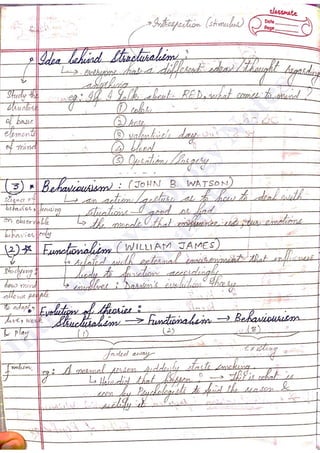 classmate
Date
Page
• Introspection (stimulus)
• Idea behind Structuralism:
↳ everyone has a different idea / thought regarding
anything
Study the
structure
of basic
elements
of mind
eg: If I talk about RED, what comes to mind
① color
② Anger
③ valentine's day
④ blood
⑤ Operation / Surgery
(3) * Behaviourism: (JOHN B. WATSON)
science of
behavior, focusing
on observable
behavior only
↳ an action / gesture as to how to deal with
situations - good or bad
↳ the mode that influence us/our emotions
(2) * Functionalism (WILLIAM JAMES)
Studying
how mind
allows people
to adapt,
live, work
& play
• related with external environment that influences
body to function accordingly
• involves: Darwin's evolution theory
• Evolution of theories:
Structuralism → Functionalism → Behaviourism
(1) (2) (3)
faded away
existing
eg: A normal person suddenly starts smoking
↳ How did that happen? → this is what is
seen by Psychologists to find the reason &
rectify it